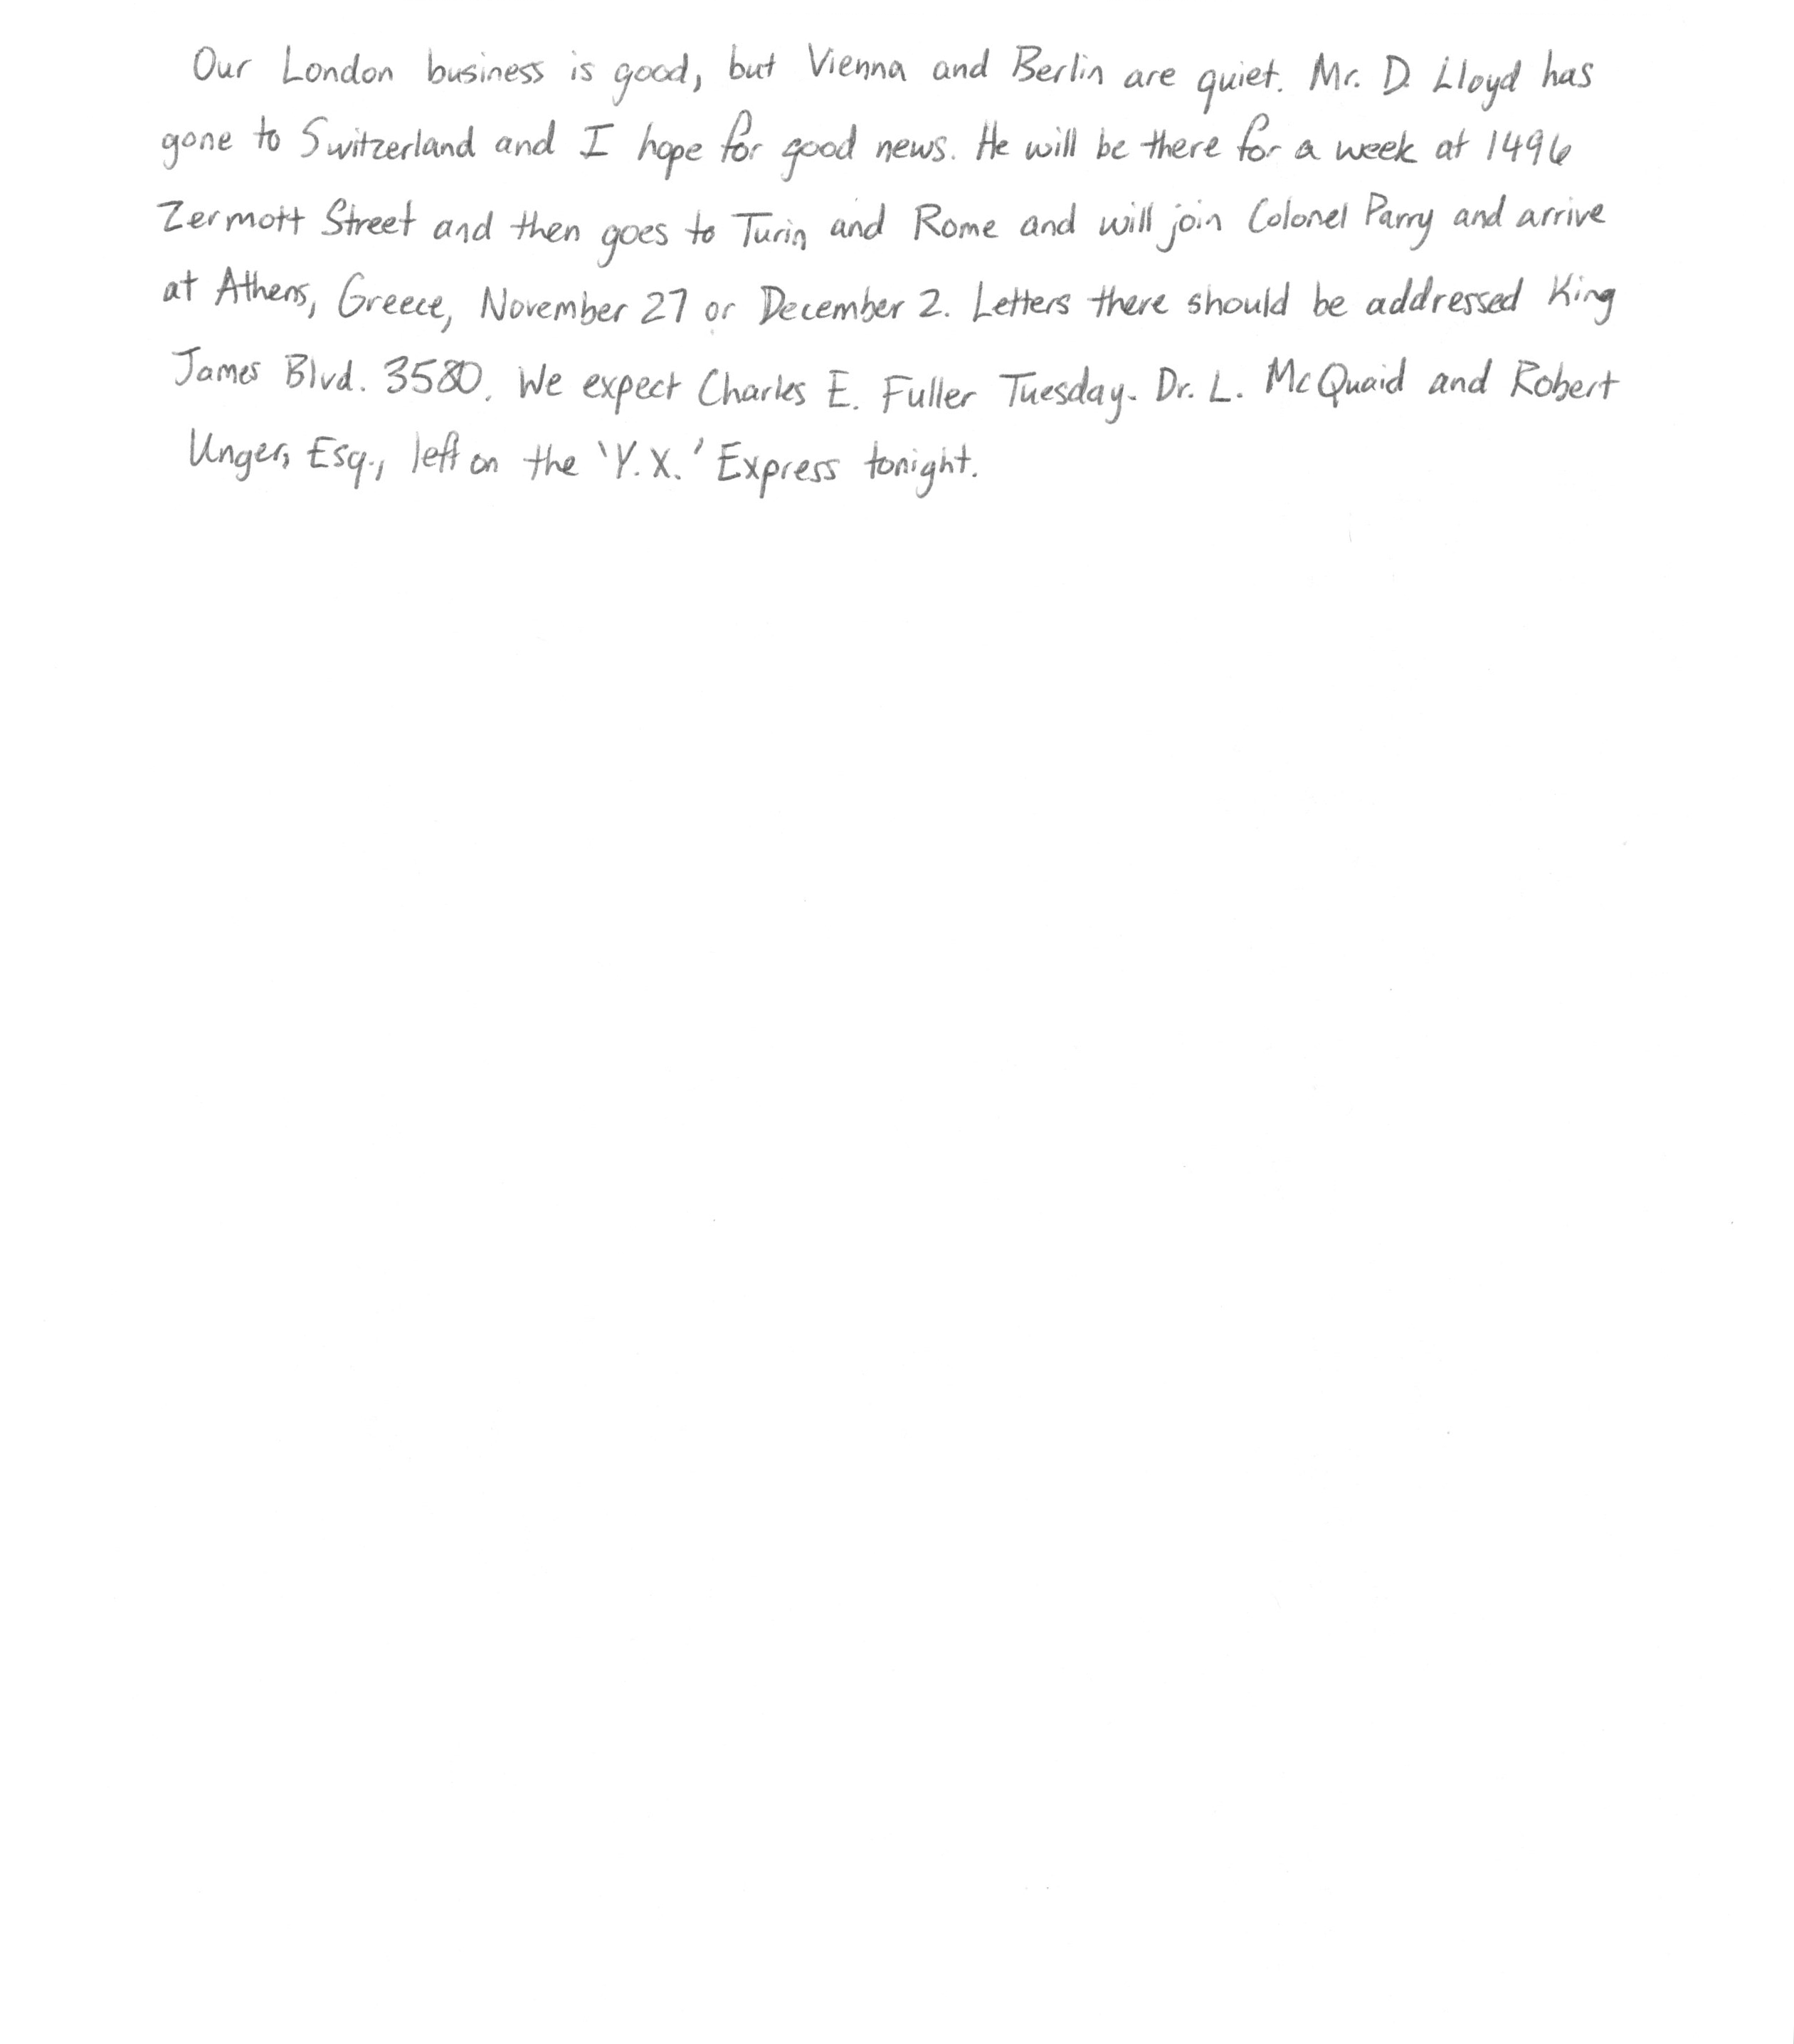 Our London business is good, but Vienna and Berlin are quiet. Mr. D. Lloyd has
gone to Switzerland and I hope for good news. He will be there for a week at 1496
Zermott Street and then goes to Turin and Rome and will join Colonel Parry and arrive
at Athens, Greece, November 27 or December 2. Letters there should be addressed King
James Blvd. 3580. We expect Charles E. Fuller Tuesday. Dr. L. McQuaid and Robert
Unger, Esq., left on the 'Y.X.' Express tonight.